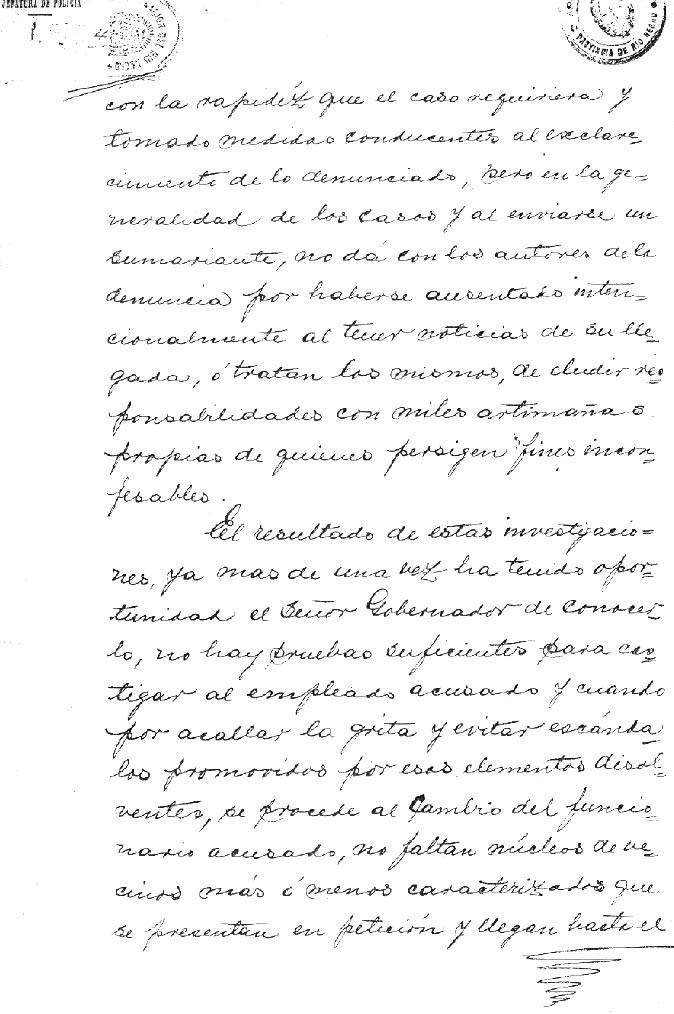 JEFATURA DE POLICIA
PROVINCIA DE RIO NEGRO
con la rapidéz que el caso requiriera y
tomado medidas conducentes al exclare-
cimiento de lo denunciado, pero en la ge-
neralidad de los casos y al enviarse un
sumariante, no dá con los autores de la
denuncia por haberse ausentado inten-
cionalmente al tener noticias de su lle-
gada, ó tratan los mismos, de eludir res
ponsabilidades con miles artimañas
propias de quienes persigen fines incon-
fesables.
El resultado de estas investigacio=
nes, ya mas de una vez ha tenido opor-
tunidad el Señor Gobernador de conocer-
lo, no hay pruebas suficientes para cas-
tigar al empleado acusado y cuando
por acallar la grita y evitar escánda-
los promovidos por esos elementos disol-
ventes, se procede al cambio del funcio-
nario acusado, no faltan núcleos de ve-
cinos más ó menos caracterizados que
se presentan en petición y llegan hasta el